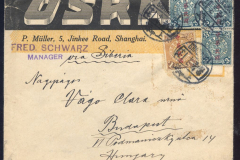 OSRAM
P. Müller, 5, Jinkee Road, Shanghai.
FRED. SCHWARZ
MANAGER
via Siberia
Nagyságos
Vágó Clara
Budapest
14
Hungary